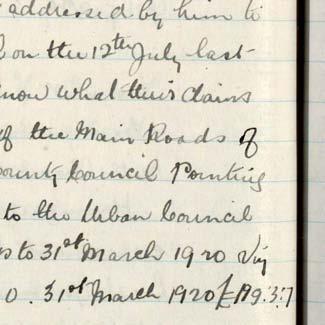 addressed by him to
on the 12th July last
know what their claims
of the Main Roads of
County Council Pointing
to the Urban Council
to 31st March 1920 Viz
0. 31st March 1920